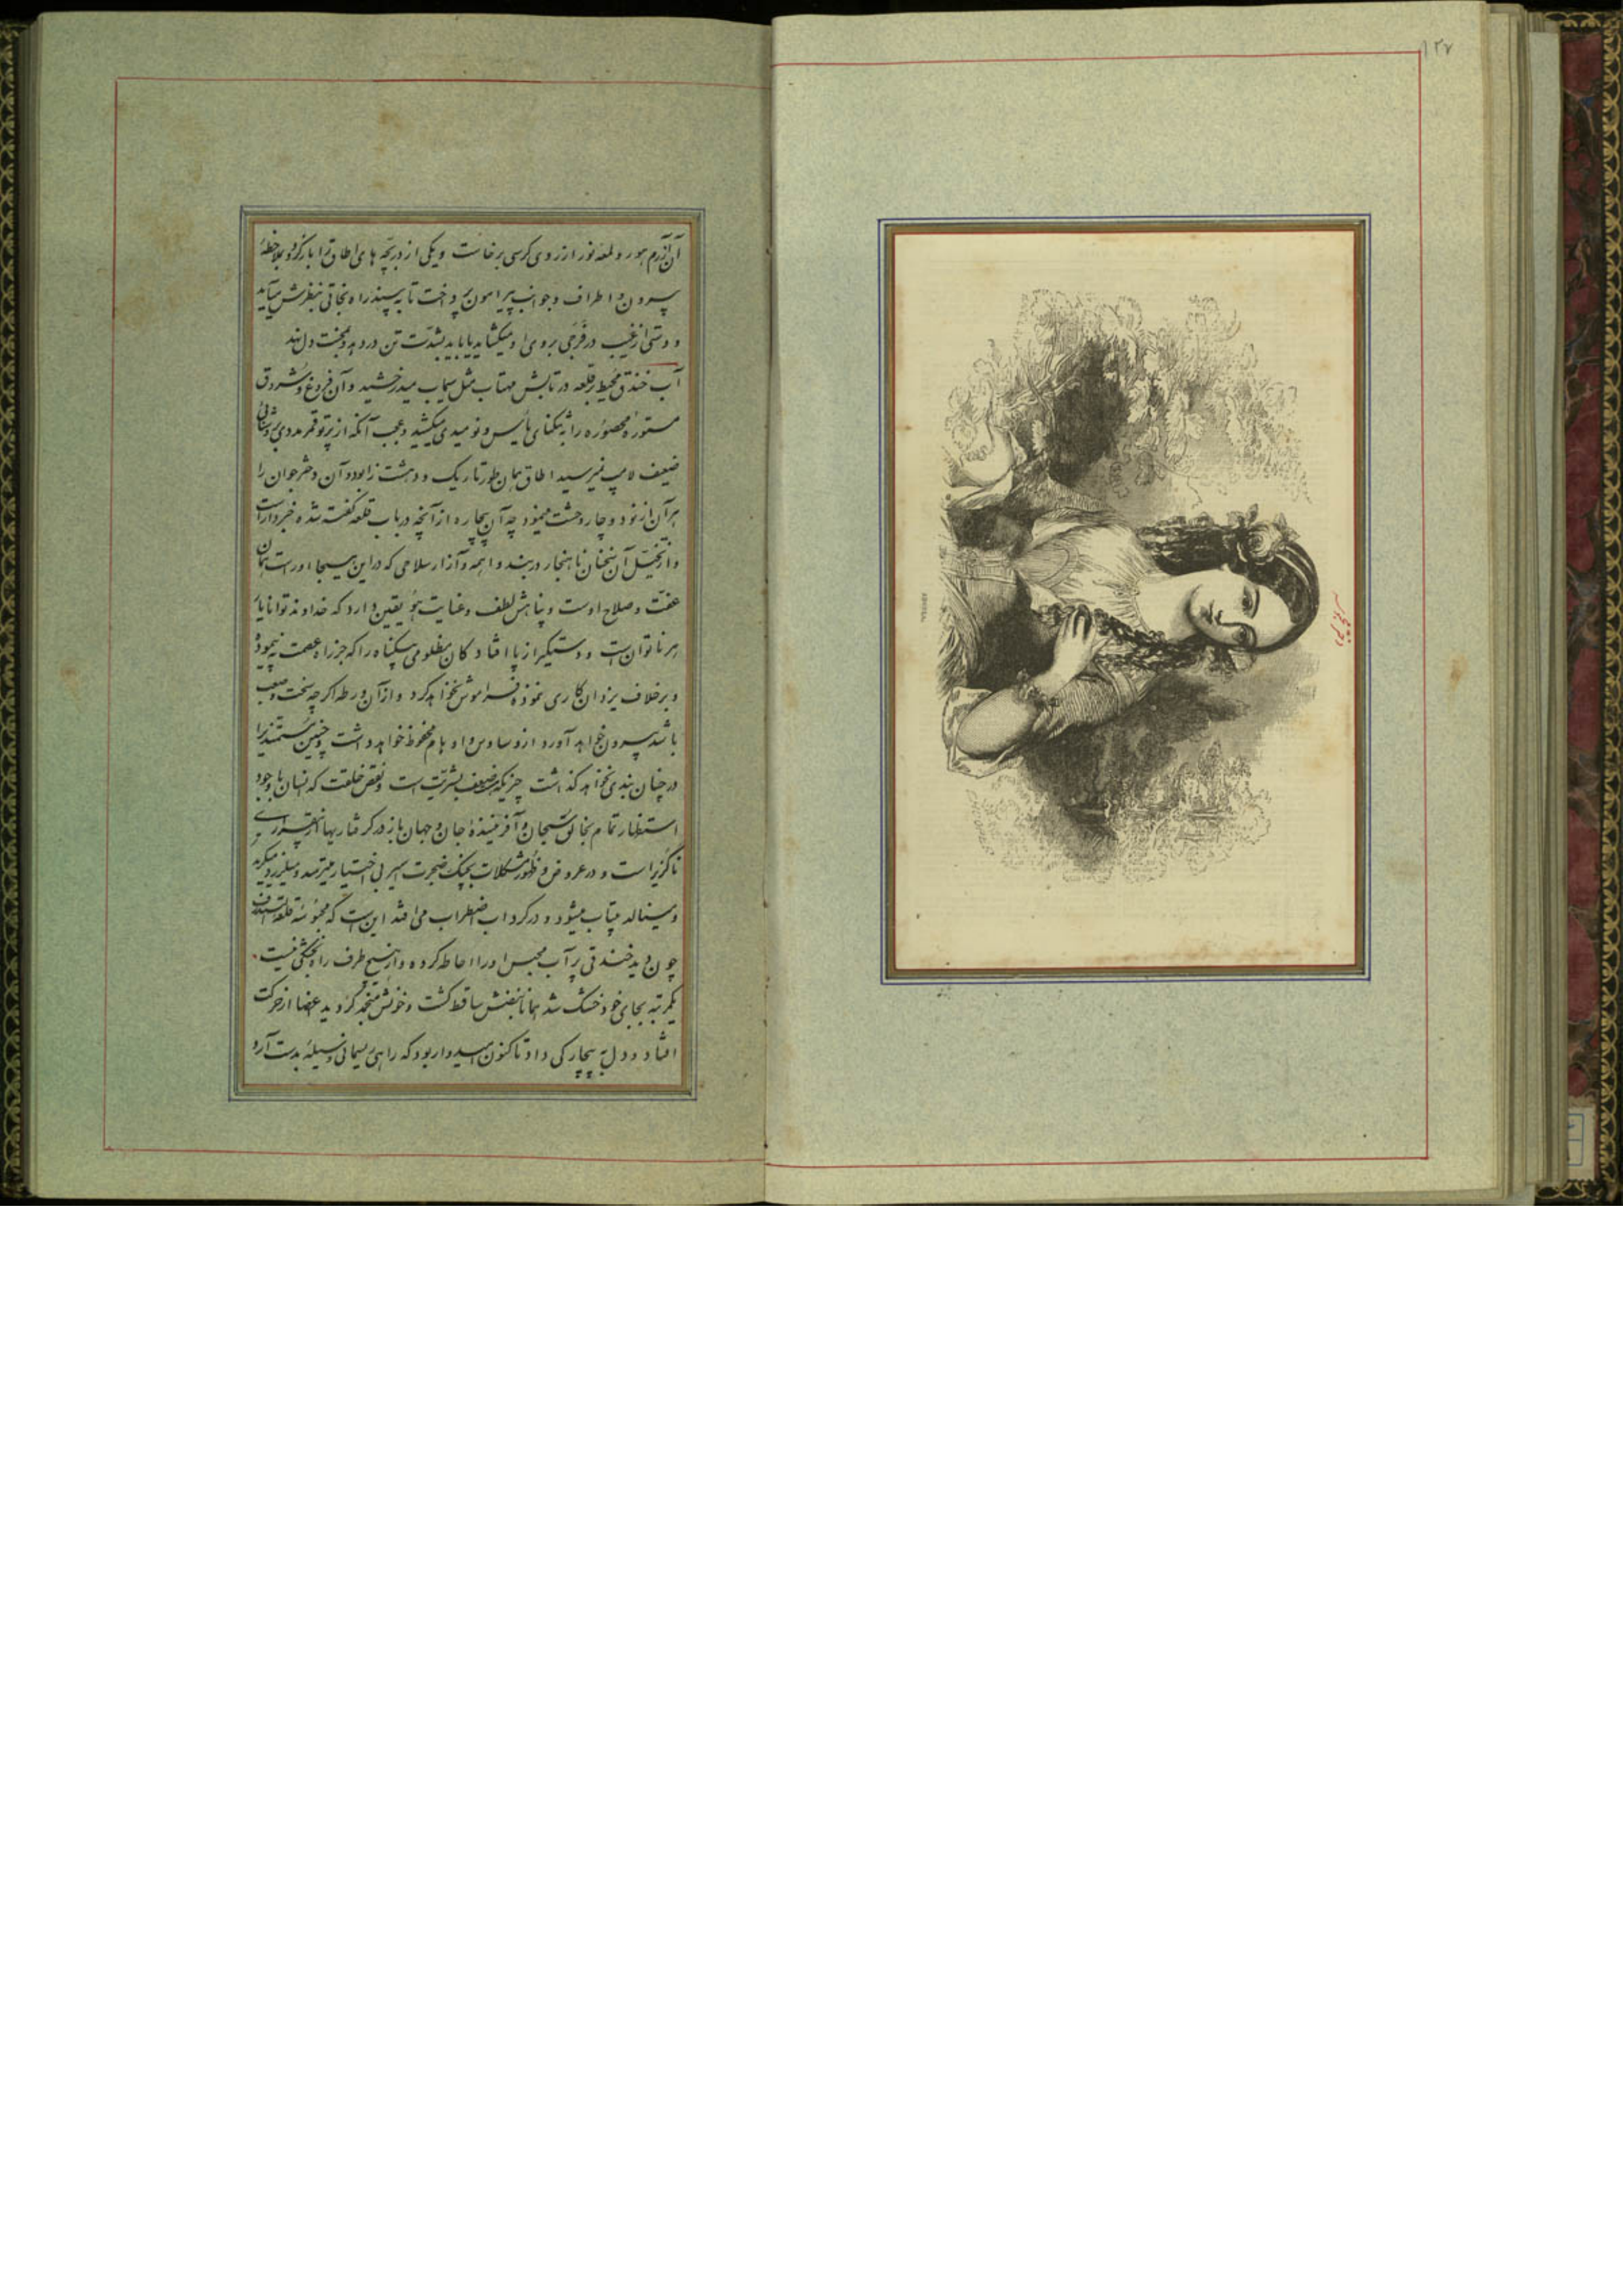 ۱۲۷
آن آزرم هور و لمعه نور از روی کرسی برخاست و یکی از دریچه های اطاق را باز کرد و بملاحظهٔ
بیرون و اطراف و جوانب پیرامون پرداخت تا به بیند راه نجاتی بنظرش میآید
و دستی از غیب در فرجی بروی او میکشاید یا باید بشدّت تن در دهد و دل نهد
آب خندق محیط بر قلعه در تابش مهتاب مثل سیماب میدرخشید و آن فروغ و شروق
مستورهٔ محصوره را به تنکنای یأس و نومیدی میکشید و عجب آنکه از پرتو قمر مددی بروشنائی
ضعیف لامپ نمیرسید اطاق همان طور تاریک و دهشت زا بود و آن دختر جوان را
هر آن از نو دوچار وحشت مینمود چه آن بیچاره از آنچه در باب قلعه کفته شده خبردار است
و از تخیّل آن سخنان ناهنجار در بند واهمه و آزار سلاحی که در این هیجا اوراست همان
عفّت و صلاح اوست و پناهش لطف و عنایت هو یقین دارد که خداوند توانا یار
هر ناتوان است و دستکیر از پا افتادکان مظلومی بیکناه را که جز راه عصمت نپیموده
و برخلاف یزدان کاری ننموده فراموش نخواهد کرد و از آن ورطه اکر چه سخت و صعب
باشد بیرون خواهد آورد از وساوس و اوهام محفوظ خواهد داشت و چنین مستمندیرا
در چنان بندی نخواهد کذاشت چیزیکه هست ضعف بشریّت است و نقص خلقت که انسان با وجود
استظهار تمام بخالق سبحان و آفرینندهٔ جان و جهان باز در کرفتاریها از بیقراری
ناکزیر است و در عروض و ظهور مشکلات بچنک ضجرت اسیر بی اختیار میترسد و میلرزد میکرید
و مینالد بیتاب میشود و در کرداب اضطراب می افتد این است که محبوسهٔ قلعه
چون دید خندقی پر آب محبس او را احاطه کرده و از هیچ طرف راه بخشکی نیست
یکمرتبه بجای خود خشک شد همانا نبضش ساقط کشت و خونش منجمد کردید اعضا از حرکت
افتاد و دل به بیچارکی داد تا کنون امیدوار بود که راهی ریسمانی وسیلهٔ بدست آرد